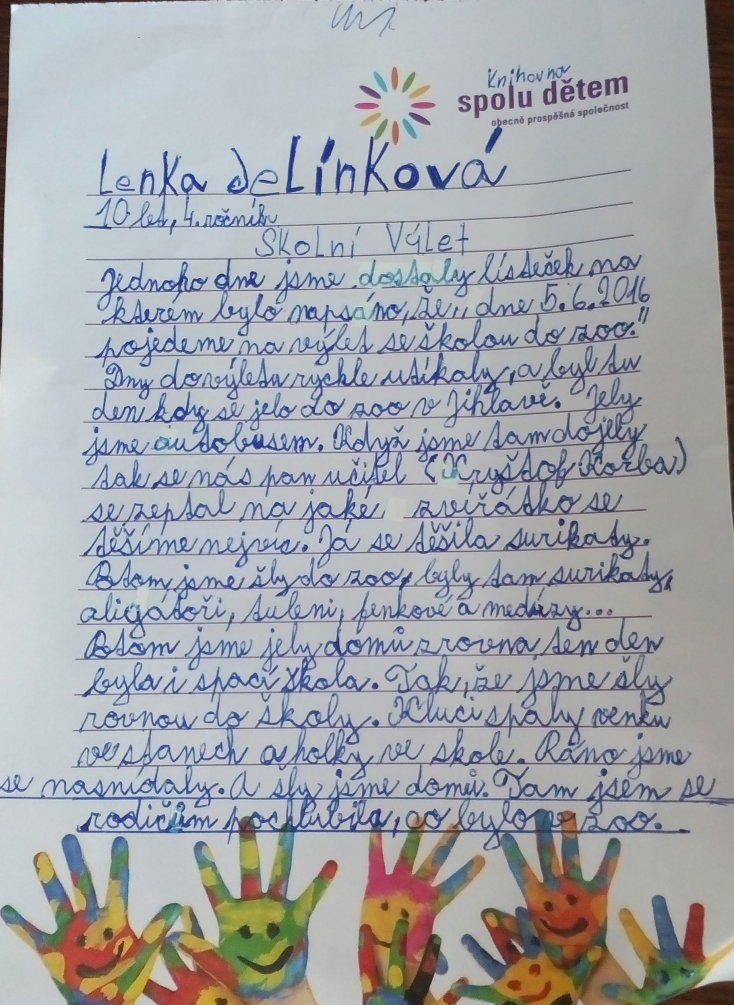 Knihovna
spolu dětem
obecně prospěšná společnost
Lenka Jelínková
10 let, 4. ročník
Školní Výlet
Jednoho dne jsme dostaly lísteček na
kterem bylo napsáno, že,, dne 5.6.2016
pojedeme na výlet se školou do zoo."
Dny do výletu rychle utíkaly, a byl tu
den kdy se jelo do zoo v Jihlavě. Jely
jsme autobusem. Když jsme tam dojely
tak se nás pan učitel (Kryštof Korba)
se zeptal na jaké zvířátko se
těšíme nejvíc. Já se těšila surikaty.
Potom jsme šly do zoo, byly tam surikaty,
aligátoři, tuleni, fenkové a medúzy...
Potom jsme jely domů zrovna ten den
byla i spací škola. Tak, že jsme šly
rovnou do školy. Kluci spaly venku
ve stanech a holky ve skole. Ráno jsme
se nasnídaly. A šly jsme domů. Tam jsem se
rodičům pochlubila, co bylo v zoo.